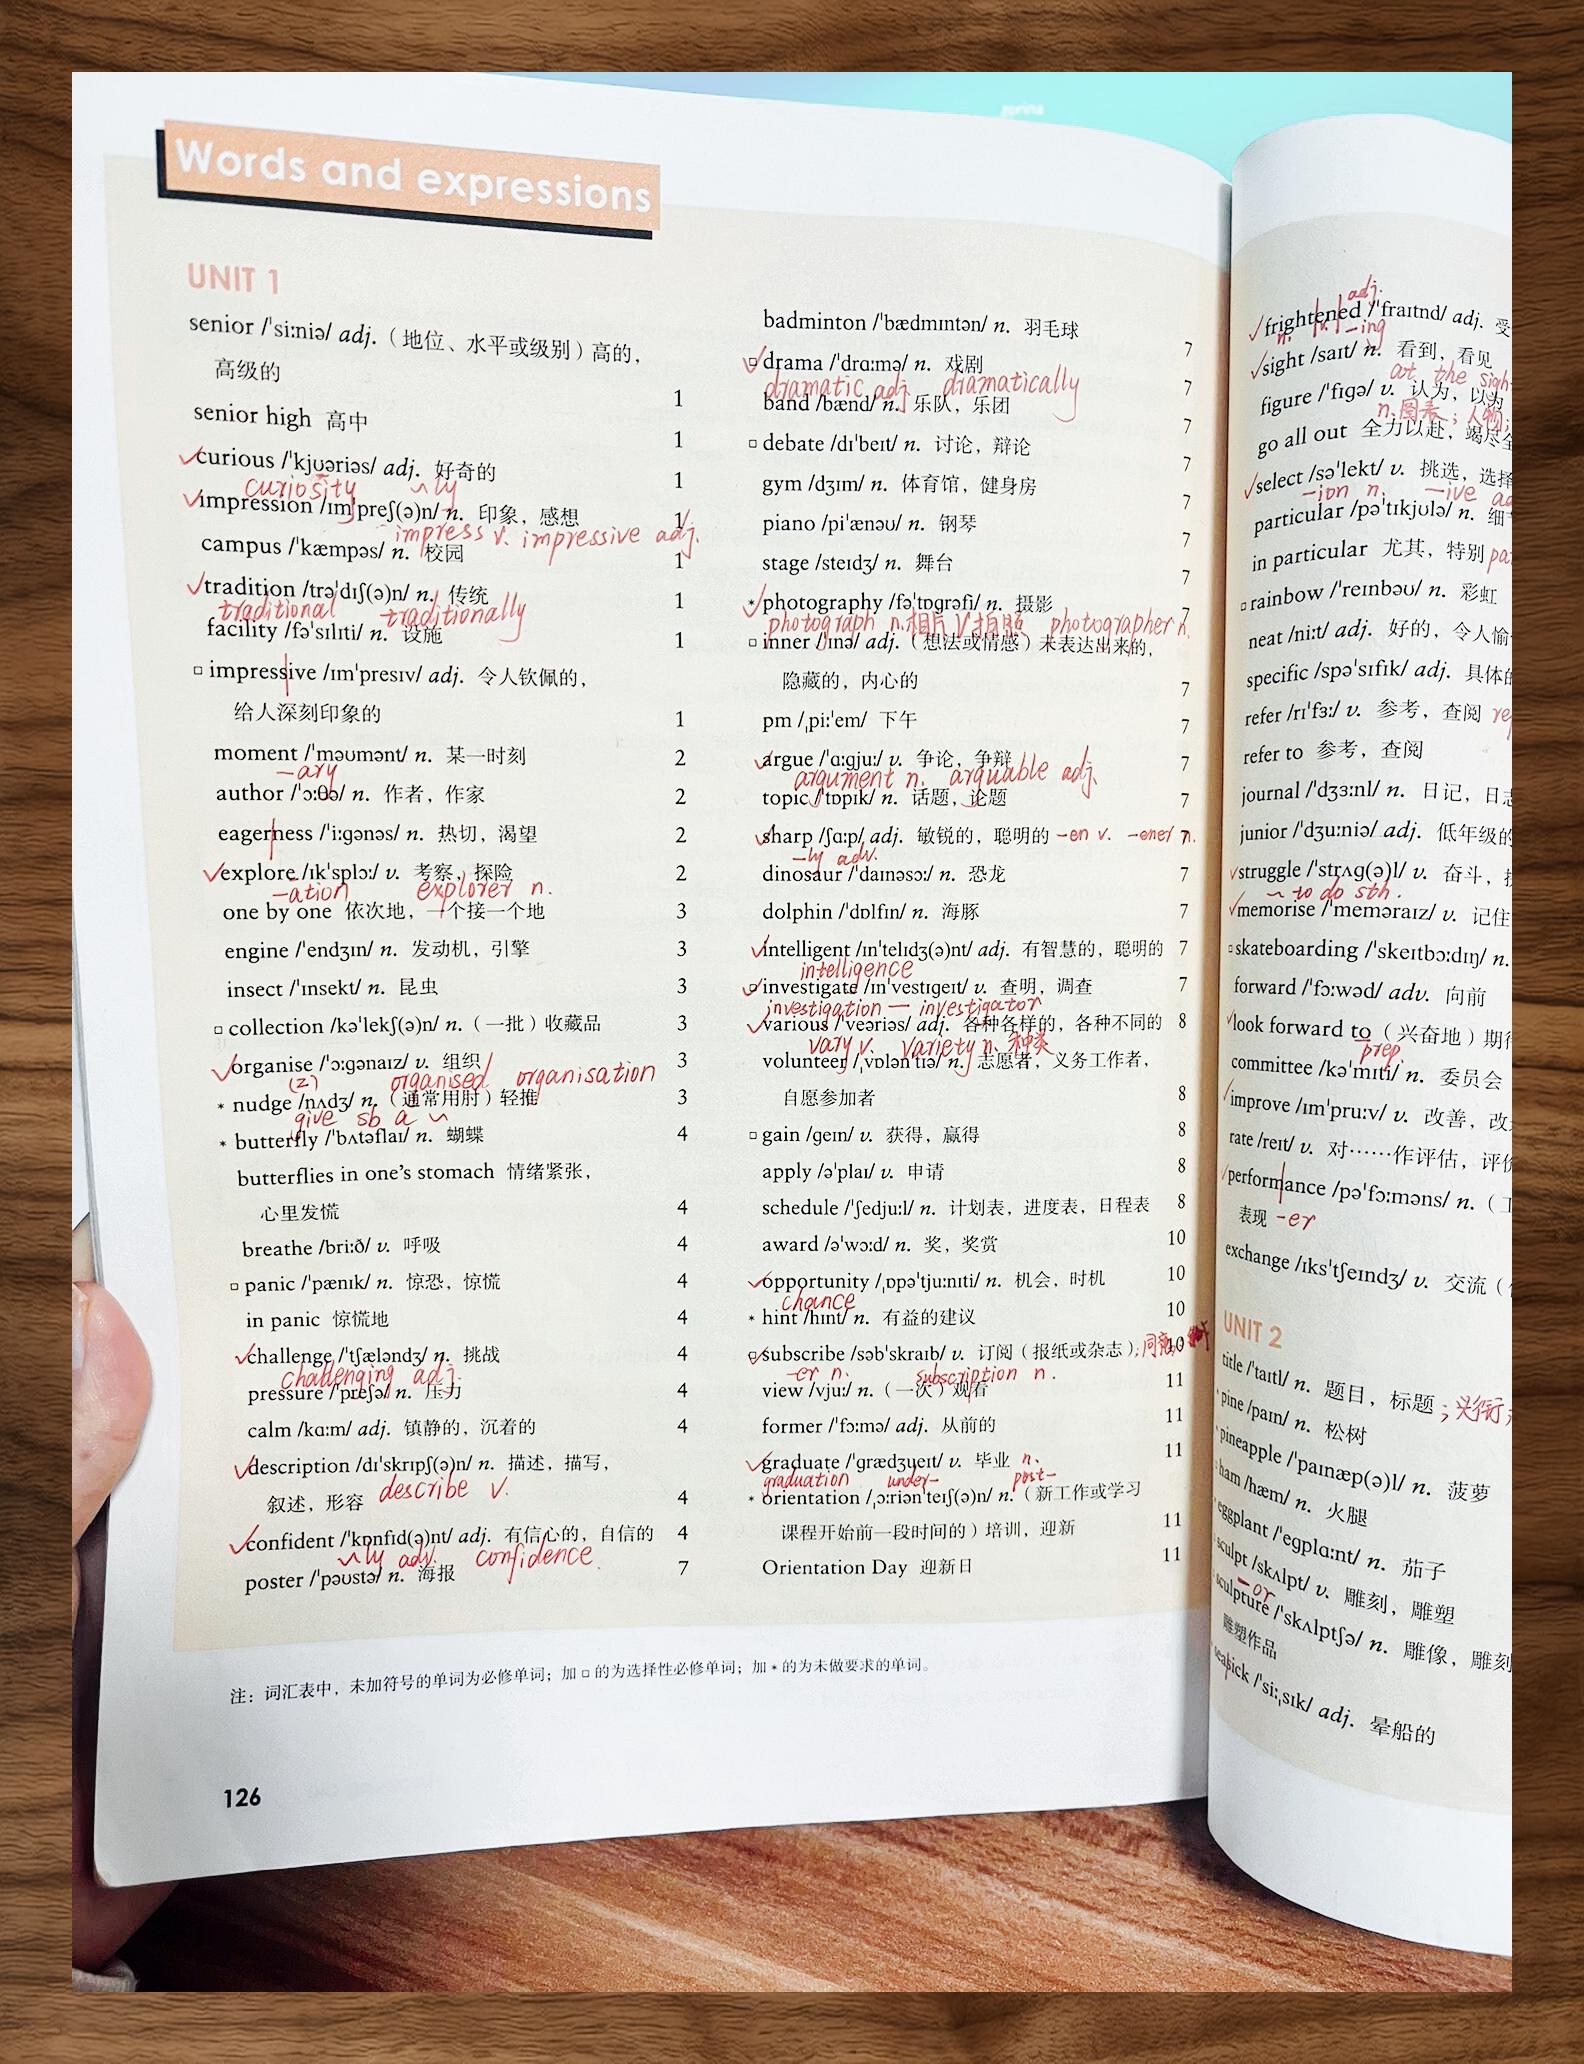 Words and expressions
UNIT 1
senior /ˈsiːniə/ adj.（地位、水平或级别）高的，
高级的 1
senior high 高中 1
✓curious /ˈkjʊəriəs/ adj. 好奇的 1
curiosity ~ly
✓impression /ɪmˈpreʃ(ə)n/ n. 印象，感想 1
impress v. impressive adj.
campus /ˈkæmpəs/ n. 校园 1
✓tradition /trəˈdɪʃ(ə)n/ n. 传统 1
traditional traditionally
facility /fəˈsɪlɪti/ n. 设施 1
□ impressive /ɪmˈpresɪv/ adj. 令人钦佩的，
给人深刻印象的 1
moment /ˈməʊmənt/ n. 某一时刻 2
-ary
author /ˈɔːθə/ n. 作者，作家 2
eagerness /ˈiːɡənəs/ n. 热切，渴望 2
✓explore /ɪkˈsplɔː/ v. 考察，探险 2
-ation explorer n.
one by one 依次地，一个接一个地 3
engine /ˈendʒɪn/ n. 发动机，引擎 3
insect /ˈɪnsekt/ n. 昆虫 3
□ collection /kəˈlekʃ(ə)n/ n.（一批）收藏品 3
✓organise /ˈɔːɡənaɪz/ v. 组织 3
(z) organised organisation
* nudge /nʌdʒ/ n.（通常用肘）轻推 3
give sb a ~
* butterfly /ˈbʌtəflaɪ/ n. 蝴蝶 4
butterflies in one’s stomach 情绪紧张，
心里发慌 4
breathe /briːð/ v. 呼吸 4
□ panic /ˈpænɪk/ n. 惊恐，惊慌 4
in panic 惊慌地 4
✓challenge /ˈtʃæləndʒ/ n. 挑战 4
challenging adj.
pressure /ˈpreʃə/ n. 压力 4
calm /kɑːm/ adj. 镇静的，沉着的 4
✓description /dɪˈskrɪpʃ(ə)n/ n. 描述，描写，
叙述，形容 4
describe v.
✓confident /ˈkɒnfɪd(ə)nt/ adj. 有信心的，自信的 4
~ly adv. confidence
poster /ˈpəʊstə/ n. 海报 7
badminton /ˈbædmɪntən/ n. 羽毛球 7
□ drama /ˈdrɑːmə/ n. 戏剧 7
dramatic adj. dramatically
band /bænd/ n. 乐队，乐团 7
□ debate /dɪˈbeɪt/ n. 讨论，辩论 7
gym /dʒɪm/ n. 体育馆，健身房 7
piano /piˈænəʊ/ n. 钢琴 7
stage /steɪdʒ/ n. 舞台 7
* photography /fəˈtɒɡrəfi/ n. 摄影 7
photograph n.相片 v.拍照 photographer n.
□ inner /ˈɪnə/ adj.（想法或情感）未表达出来的，
隐藏的，内心的 7
pm /ˌpiːˈem/ 下午 7
✓argue /ˈɑːɡjuː/ v. 争论，争辩 7
argument n. arguable adj.
topic /ˈtɒpɪk/ n. 话题，论题 7
✓sharp /ʃɑːp/ adj. 敏锐的，聪明的 -en v. -ener n. 7
-ly adv.
dinosaur /ˈdaɪnəsɔː/ n. 恐龙 7
dolphin /ˈdɒlfɪn/ n. 海豚 7
✓intelligent /ɪnˈtelɪdʒ(ə)nt/ adj. 有智慧的，聪明的 7
intelligence
□ investigate /ɪnˈvestɪɡeɪt/ v. 查明，调查 7
investigation — investigator
✓various /ˈveəriəs/ adj. 各种各样的，各种不同的 8
vary v. variety n. 种类
volunteer /ˌvɒlənˈtɪə/ n. 志愿者，义务工作者，
自愿参加者 8
□ gain /ɡeɪn/ v. 获得，赢得 8
apply /əˈplaɪ/ v. 申请 8
schedule /ˈʃedjuːl/ n. 计划表，进度表，日程表 8
award /əˈwɔːd/ n. 奖，奖赏 10
✓opportunity /ˌɒpəˈtjuːnɪti/ n. 机会，时机 10
chance
* hint /hɪnt/ n. 有益的建议 10
□ subscribe /səbˈskraɪb/ v. 订阅（报纸或杂志） 10
-er n. subscription n.
view /vjuː/ n.（一次）观看 11
former /ˈfɔːmə/ adj. 从前的 11
✓graduate /ˈɡrædʒueɪt/ v. 毕业 n. 11
graduation under- post-
* orientation /ˌɔːriənˈteɪʃ(ə)n/ n.（新工作或学习
课程开始前一段时间的）培训，迎新 11
Orientation Day 迎新日 11
注：词汇表中，未加符号的单词为必修单词；加 □ 的为选择性必修单词；加 * 的为未做要求的单词。
126
adj.
✓frightened /ˈfraɪtnd/ adj. 受
n. v. -ing
✓sight /saɪt/ n. 看到，看见
at the sigh
figure /ˈfɪɡə/ v. 认为，以为
n.图表；人物；
go all out 全力以赴，竭尽全
✓select /səˈlekt/ v. 挑选，选择
-ion n. -ive ad
particular /pəˈtɪkjʊlə/ n. 细
in particular 尤其，特别 pa
□ rainbow /ˈreɪnbəʊ/ n. 彩虹
neat /niːt/ adj. 好的，令人愉
specific /spəˈsɪfɪk/ adj. 具体的
refer /rɪˈfɜː/ v. 参考，查阅 re
refer to 参考，查阅
journal /ˈdʒɜːnl/ n. 日记，日志
junior /ˈdʒuːniə/ adj. 低年级的
✓struggle /ˈstrʌɡ(ə)l/ v. 奋斗，
~ to do sth.
✓memorise /ˈmeməraɪz/ v. 记住
□ skateboarding /ˈskeɪtbɔːdɪŋ/ n.
forward /ˈfɔːwəd/ adv. 向前
✓look forward to（兴奋地）期待
prep.
committee /kəˈmɪti/ n. 委员会
✓improve /ɪmˈpruːv/ v. 改善，改
rate /reɪt/ v. 对……作评估，评价
✓performance /pəˈfɔːməns/ n.（工
表现 -er
exchange /ɪksˈtʃeɪndʒ/ v. 交流（
UNIT 2
title /ˈtaɪtl/ n. 题目，标题；
* pine /paɪn/ n. 松树
* pineapple /ˈpaɪnæp(ə)l/ n. 菠萝
ham /hæm/ n. 火腿
* eggplant /ˈeɡplɑːnt/ n. 茄子
sculpt /skʌlpt/ v. 雕刻，雕塑
-or
sculpture /ˈskʌlptʃə/ n. 雕像，雕刻
雕塑作品
seasick /ˈsiːˌsɪk/ adj. 晕船的